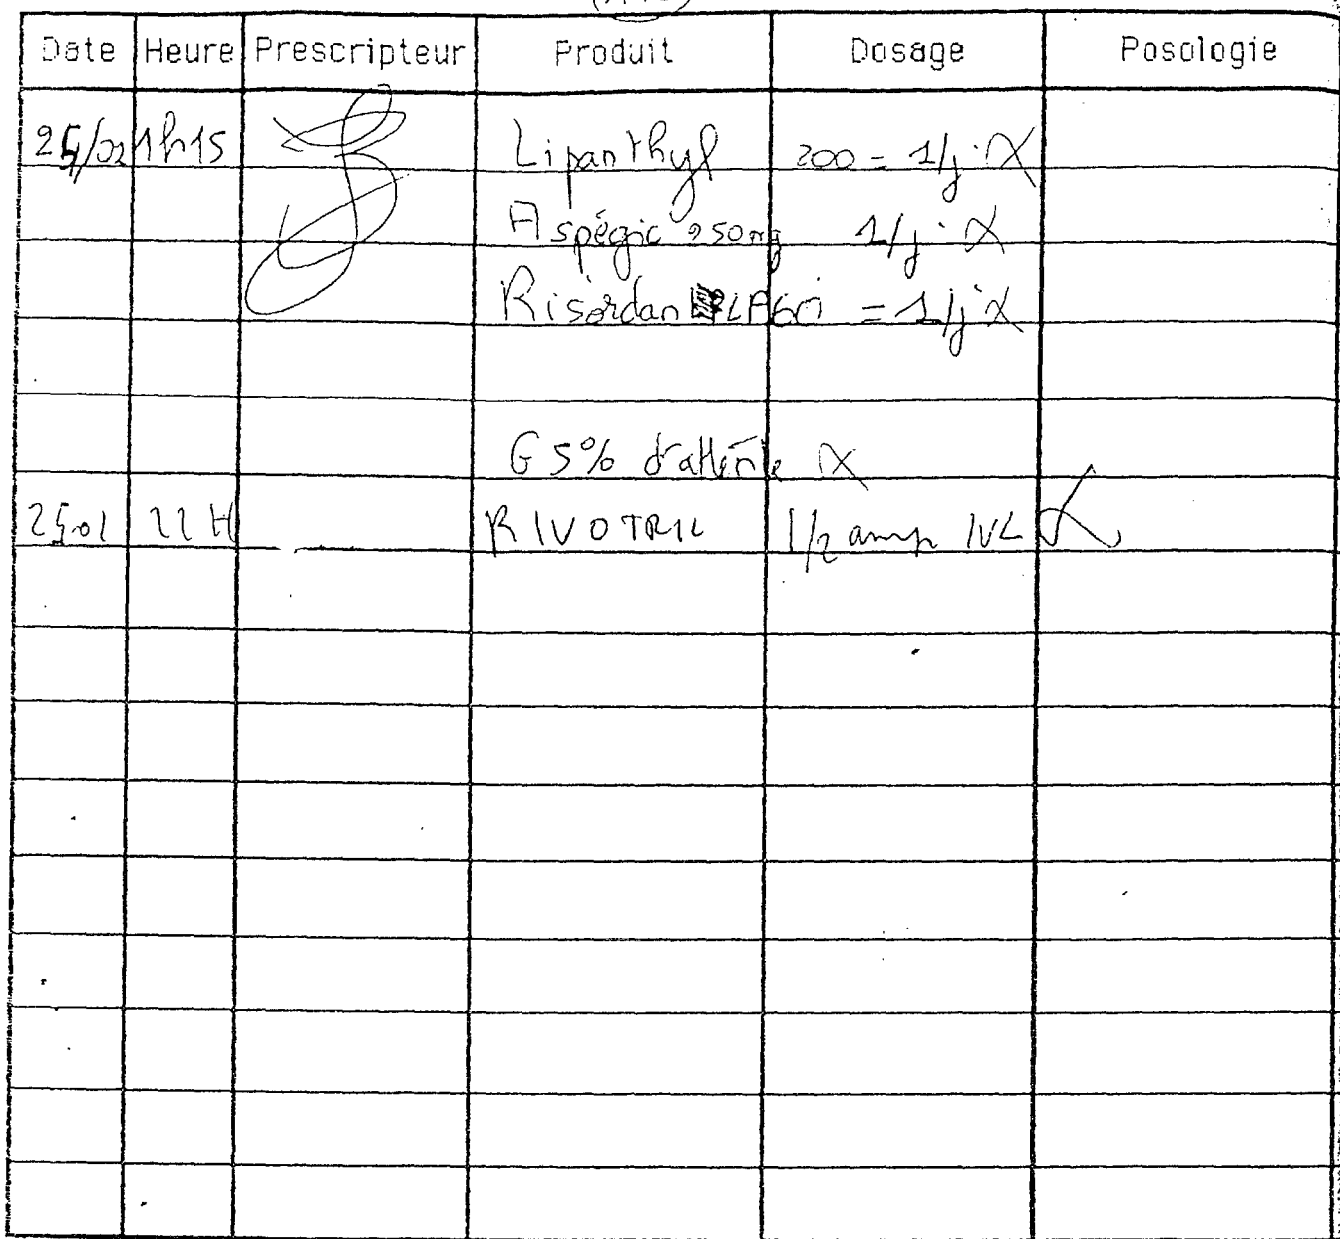 Date Heure Prescripteur Produit Dosage Posologie
1h15 Lipanthyl 200 = 1/j
Aspégic 250mg 1/j
Risordan LP60 = 1/j
G 5% d'attente
22 H RIVOTRIL 1/2 amp IVL